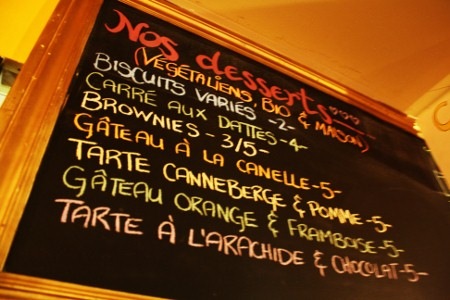 Nos desserts...
(VÉGÉTALIENS, BIO & MAISON)
BISCUITS VARIÉS -2-
CARRÉ AUX DATTES -4-
BROWNIES - 3/5-
GÂTEAU À LA CANELLE -5-
TARTE CANNEBERGE & POMME -5-
GÂTEAU ORANGE & FRAMBOISE -5-
TARTE À L'ARACHIDE & CHOCOLAT -5-